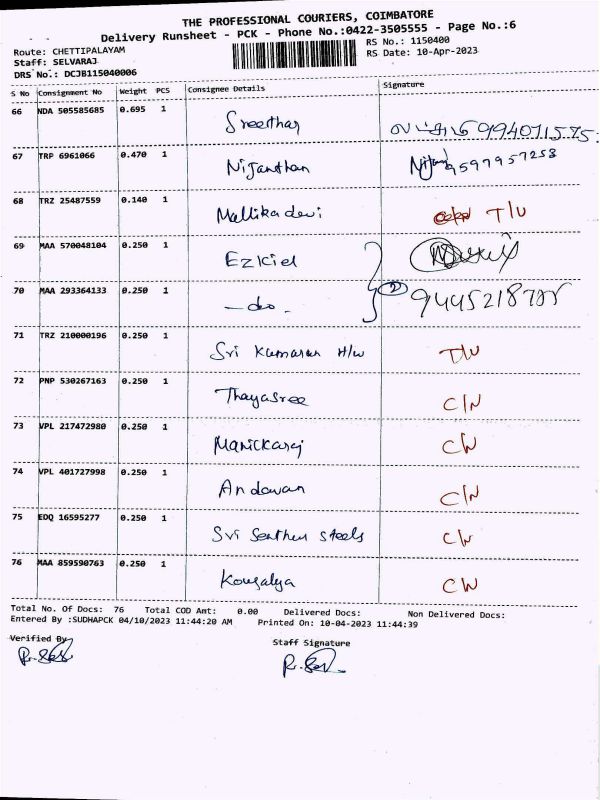 THE PROFESSIONAL COURIERS, COIMBATORE
Delivery Runsheet - PCK - Phone No.:0422-3505555 - Page No.:6
Route: CHETTIPALAYAM
RS No.: 1150400
Staff: SELVARAJ
RS Date: 10-Apr-2023
DRS No.: DCJB115040006
S No Consignment No Weight PCS Consignee Details Signature
66 NDA 505585685 0.695 1 Sreethar 9940711575
67 TRP 6961066 0.470 1 Nijanthan 9597957253
68 TRZ 25487559 0.140 1 Mallika devi T/U
69 MAA 570048104 0.250 1 Ezkiel
70 MAA 293364133 0.250 1 -do-. ②
71 TRZ 210000196 0.250 1 Sri Kumaran H/w T/U
72 PNP 530267163 0.250 1 Thayasree C/N
73 VPL 217472980 0.250 1 Manickaraj C/N
74 VPL 401727998 0.250 1 Andavan C/N
75 EDQ 16595277 0.250 1 Sri Senthur Steels C/N
76 MAA 859590763 0.250 1 Kousalya C/N
Total No. Of Docs: 76 Total COD Amt: 0.00 Delivered Docs: Non Delivered Docs:
Entered By :SUDHAPCK 04/10/2023 11:44:20 AM Printed On: 10-04-2023 11:44:39
Verified By
Staff Signature